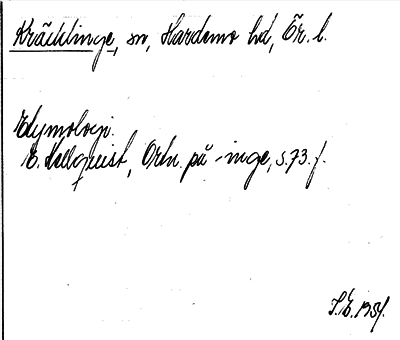 Kräcklinge, sn, Hardemo hd, Ör. l.
Etymologi.
E. Hellquist, Ortn. på -inge, s. 73. f.